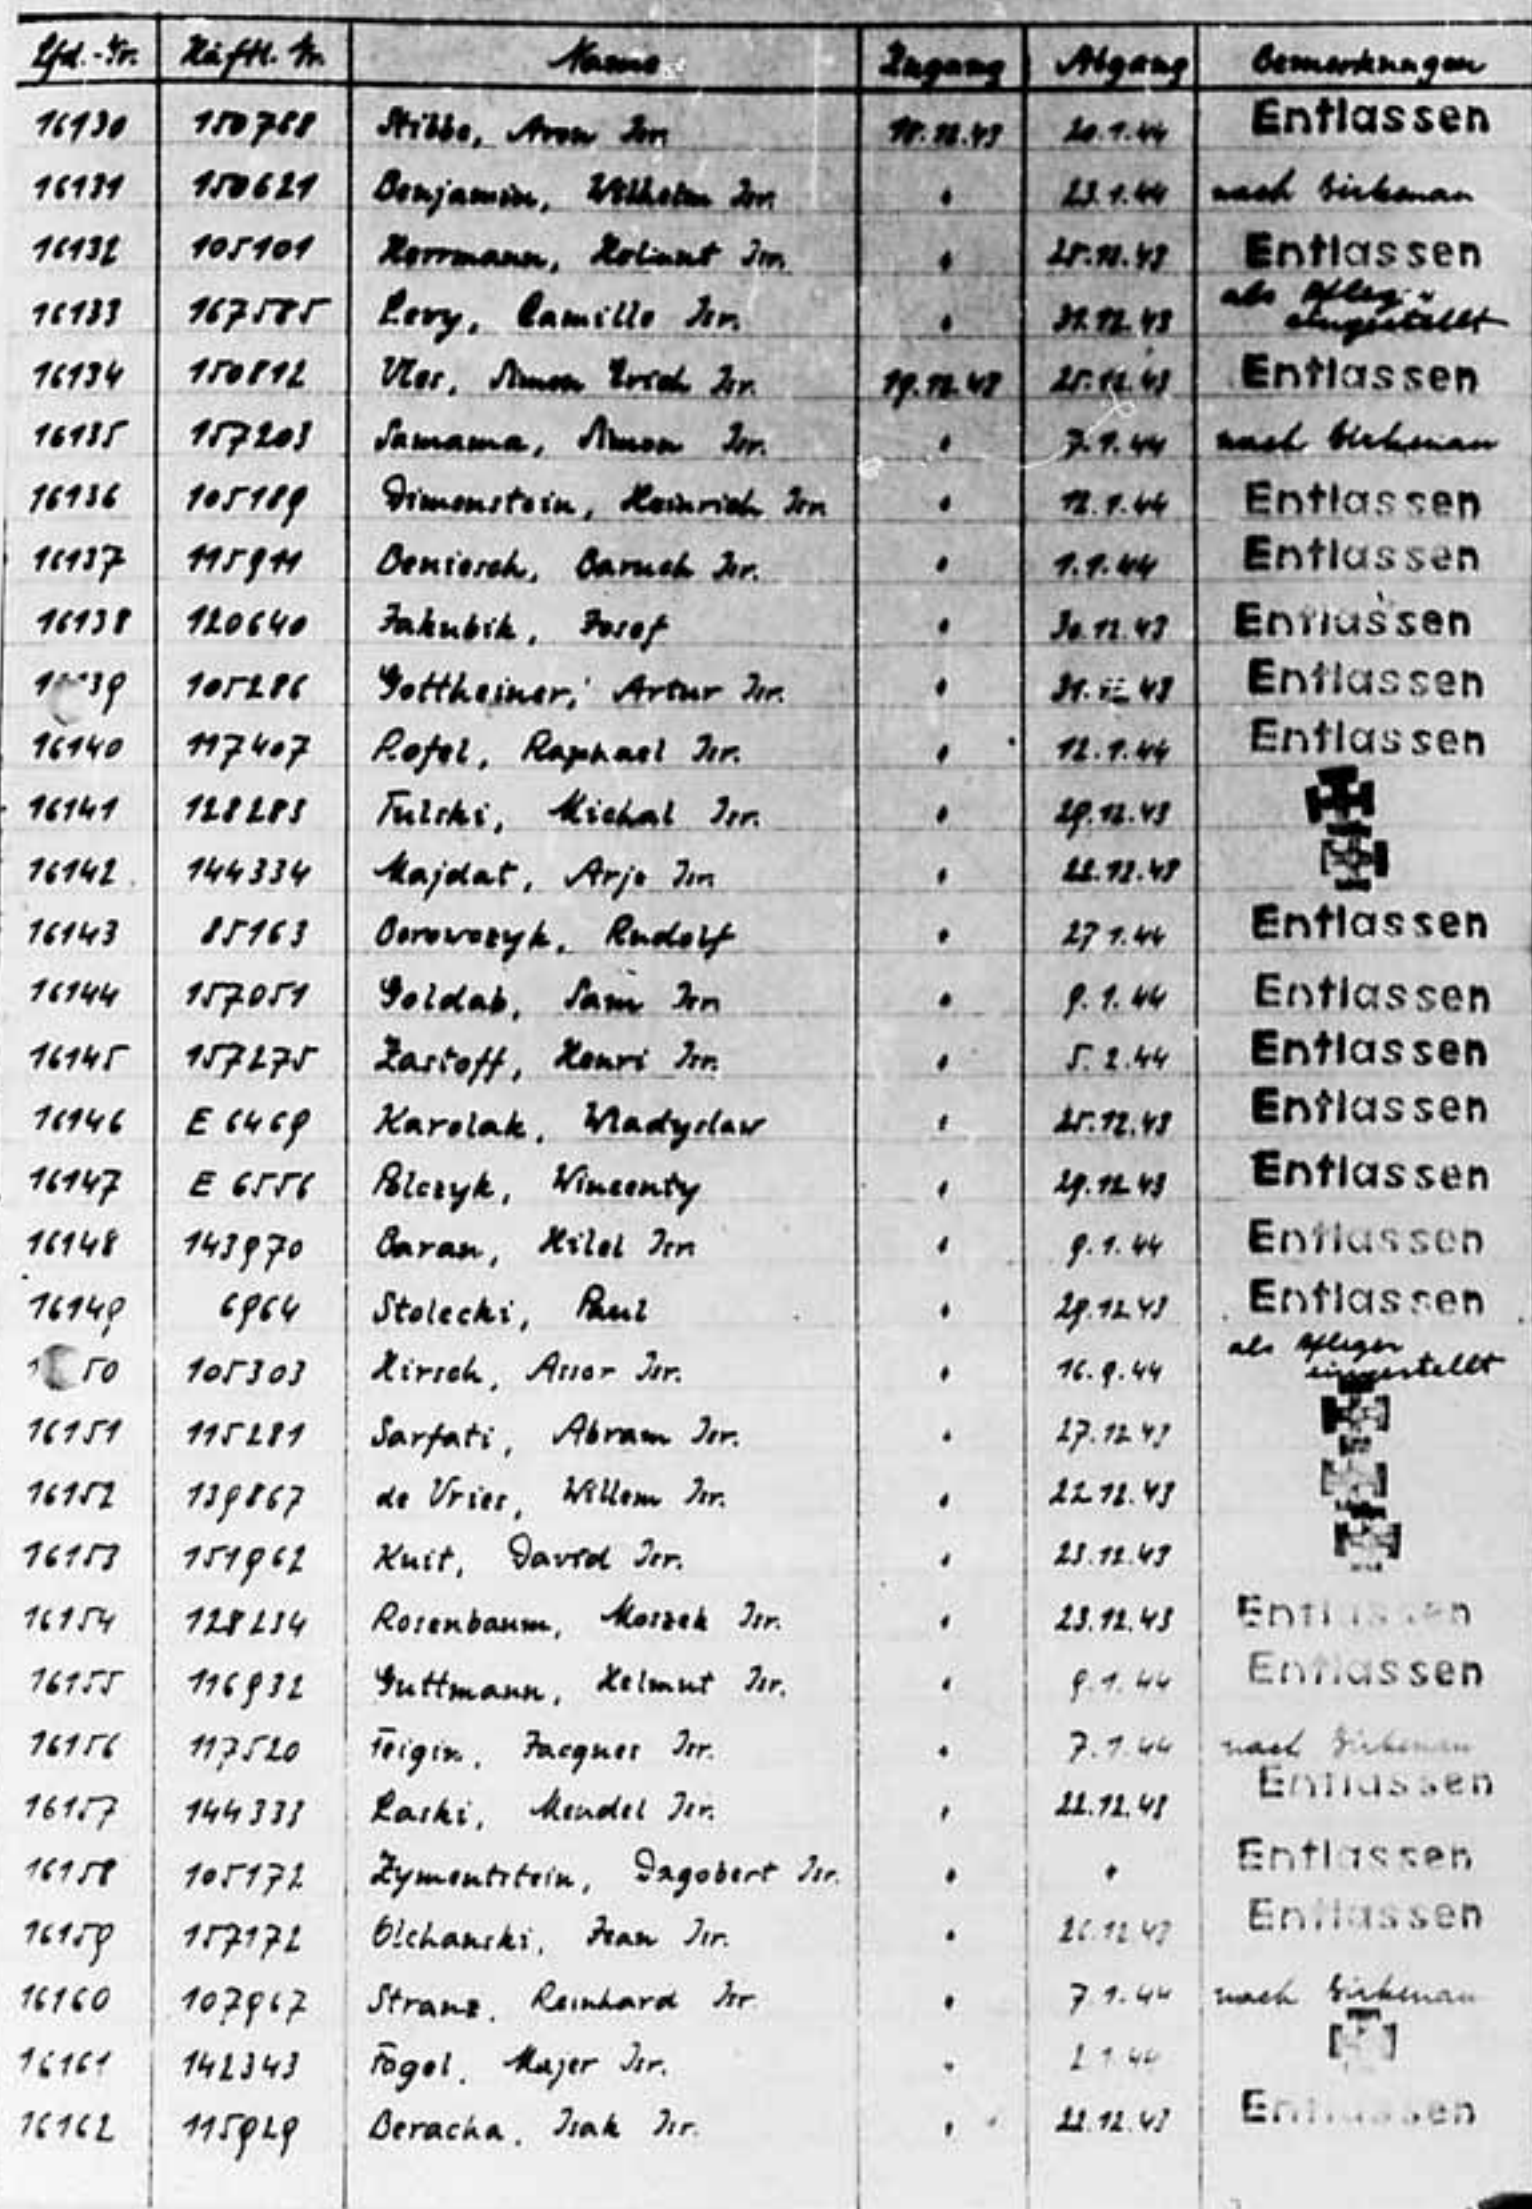 Lfd.-Nr. Häftl. Nr. Name Zugang Abgang Bemerkungen
16130 150788 Stibbe, Aron Isr. 18.12.43 20.1.44 Entlassen
16131 150621 Benjamin, Wilhelm Isr. " 23.1.44 nach Birkenau
16132 105101 Herrmann, Helmut Isr. " 25.12.43 Entlassen
16133 167585 Levy, Camille Isr. " 31.12.43 als Pfleger eingestellt
16134 150812 Vles, Simon Erich Isr. 19.12.43 25.12.43 Entlassen
16135 157203 Samama, Simon Isr. " 7.1.44 nach Birkenau
16136 105189 Dimenstein, Heinrich Isr. " 12.1.44 Entlassen
16137 115911 Beniesch, Baruch Isr. " 1.1.44 Entlassen
16138 120640 Jakubik, Josef " 30.12.43 Entlassen
105286 Gottheiner, Artur Isr. " 31.12.43 Entlassen
16140 117407 Rofel, Raphael Isr. " 12.1.44 Entlassen
16141 128283 Fulski, Michal Isr. " 29.12.43
16142 144334 Majdat, Arje Isr. " 22.12.43
16143 85163 Borowczyk, Rudolf " 27.1.44 Entlassen
16144 157051 Goldab, Sam Isr. " 9.1.44 Entlassen
16145 157275 Zastoff, Henri Isr. " 5.2.44 Entlassen
16146 E 6469 Karolak, Wladyslaw " 25.12.43 Entlassen
16147 E 6556 Polczyk, Wincenty " 29.12.43 Entlassen
16148 143970 Baran, Hilel Isr. " 9.1.44 Entlassen
16149 6964 Stolecki, Paul " 29.12.43 Entlassen
105303 Hirsch, Assor Isr. " 16.9.44 als Pfleger eingestellt
16151 115281 Sarfati, Abram Isr. " 27.12.43
16152 139867 de Vries, Willem Isr. " 22.12.43
16153 151962 Kuit, David Isr. " 23.12.43
16154 128234 Rosenbaum, Moszek Isr. " 23.12.43 Entlassen
16155 116932 Guttmann, Helmut Isr. " 9.1.44 Entlassen
16156 117520 Feigin, Jacques Isr. " 7.1.44 nach Birkenau
16157 144333 Laski, Mendel Isr. " 22.12.43 Entlassen
16158 105172 Zymentstein, Dagobert Isr. " " Entlassen
16159 157172 Olchanski, Jean Isr. " 26.12.43 Entlassen
16160 107967 Stranz, Reinhard Isr. " 7.1.44 nach Birkenau
16161 142343 Fogel, Majer Isr. " 2.1.44
16162 115929 Beracha, Isak Isr. " 22.12.43 Entlassen